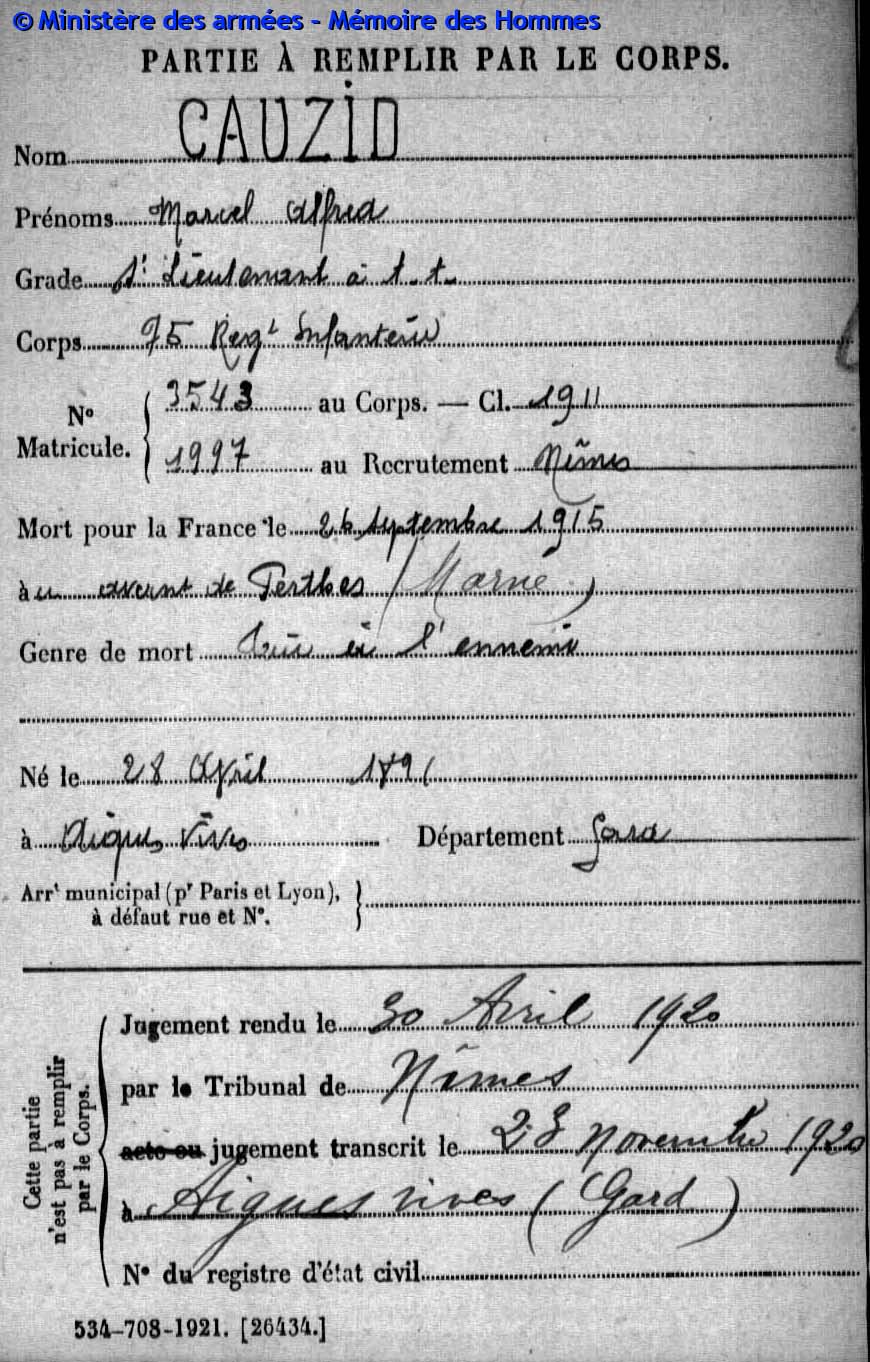 © Ministère des armées - Mémoire des Hommes
PARTIE À REMPLIR PAR LE CORPS.
Nom CAUZID
Prénoms Marcel Alfred
Grade St Lieutenant à t.t.
Corps 75 Regt Infanterie
No Matricule. 3543 au Corps. — Cl. 1911
1997 au Recrutement Nîmes
Mort pour la France le 26 septembre 1915
à u avant de Perthes (Marne)
Genre de mort Tué à l'ennemi
Né le 28 Avril 1891
à Aigues Vives Département Gard
Arrt municipal (pr Paris et Lyon),
à défaut rue et No.
Cette partie
n'est pas à remplir
par le Corps.
Jugement rendu le 30 Avril 1920
par le Tribunal de Nîmes
acte ou jugement transcrit le 23 Novembre 1920
à Aigues vives (Gard)
No du registre d'état civil
534-708-1921. [26434.]